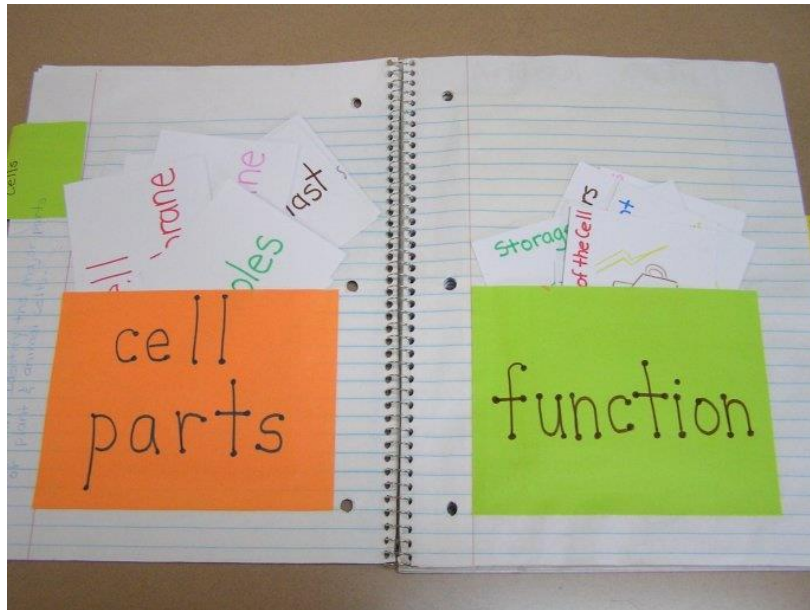 cells
ell
brane
ne
last
oles
cell
parts
Storag
of the Cell
rs
t
function